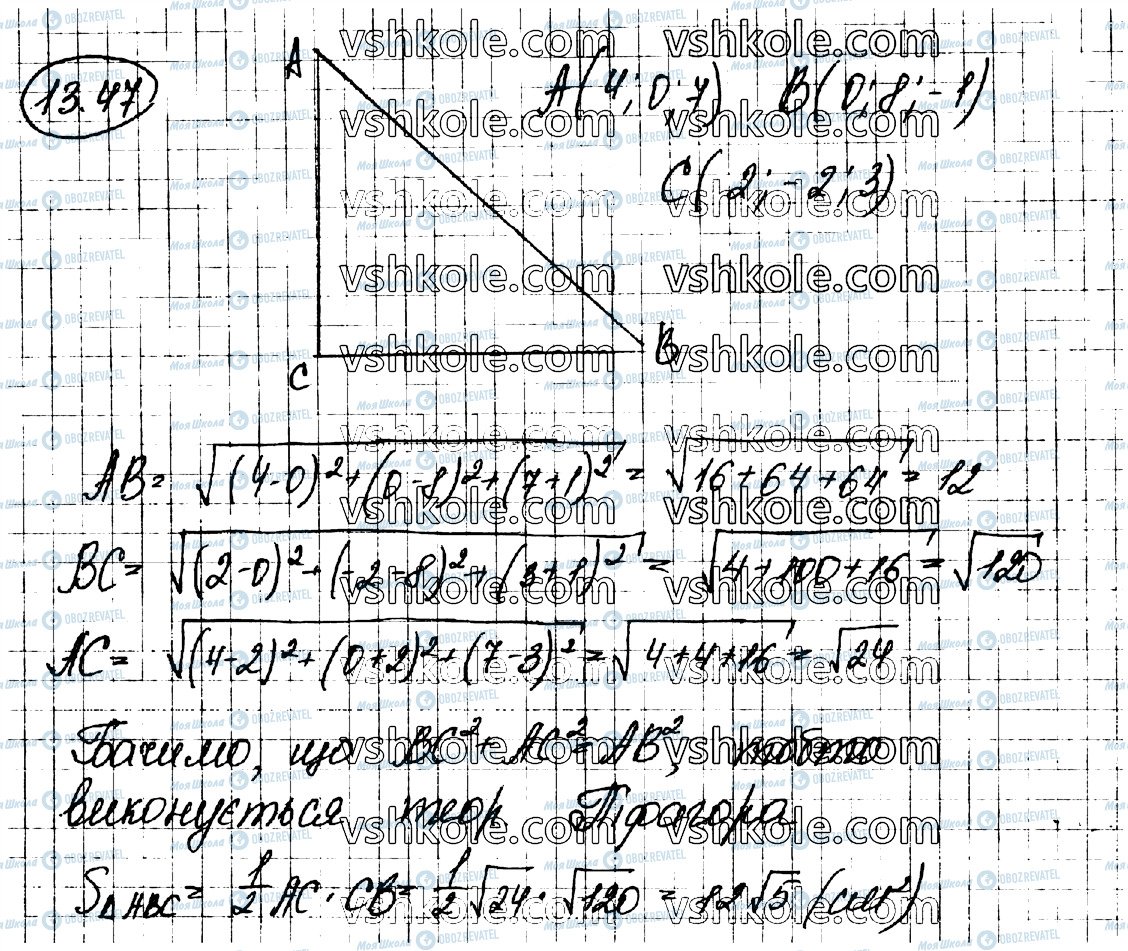 13.47
A
A(4; 0; 7) B(0; 8; -1)
C(2; -2; 3)
B
C
AB = √((4-0)²+(0-8)²+(7+1)²) = √(16+64+64) = 12
BC = √((2-0)²+(-2-8)²+(3+1)²) = √(4+100+16) = √120
AC = √((4-2)²+(0+2)²+(7-3)²) = √(4+4+16) = √24
Бачимо, що BC²+AC²=AB², тобто
виконується теор Піфагора.
S△ABC = 1/2 AC · CB = 1/2 √24 · √120 = 12√5 (см²)
vshkole.com
Моя Школа OBOZREVATEL